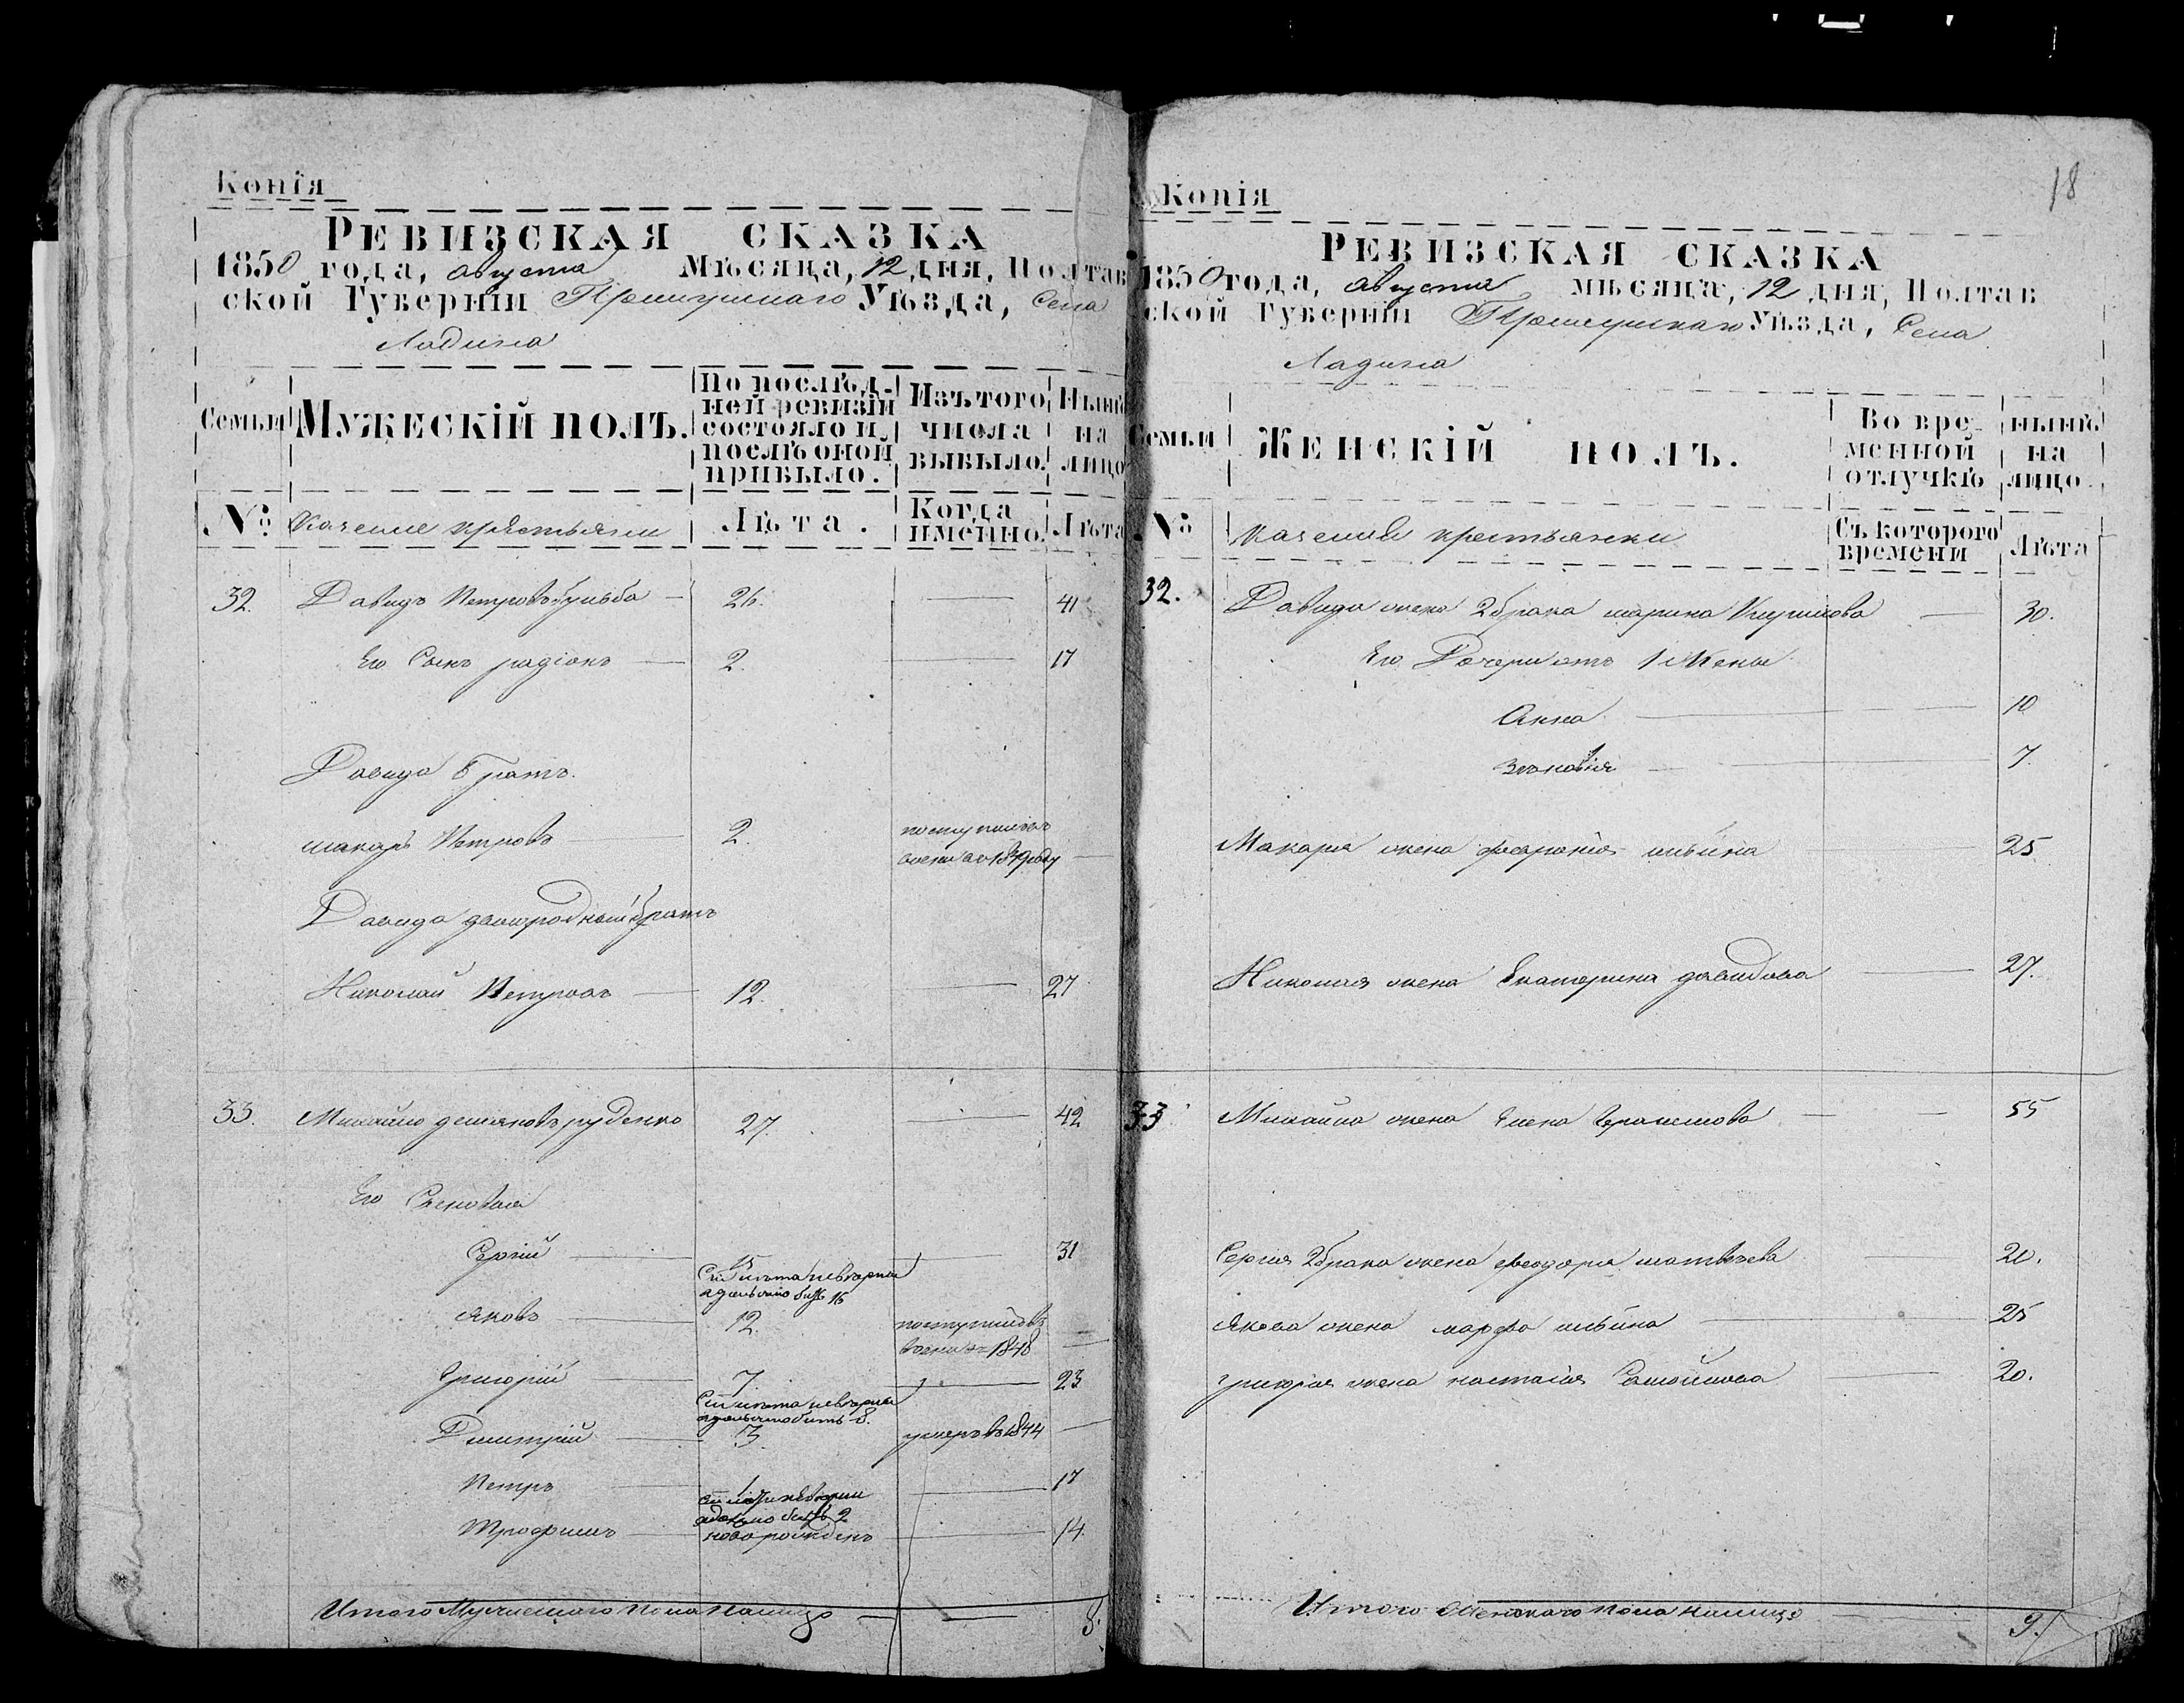 Копія
РЕВИЗСКАЯ СКАЗКА
1850 года, августа Мѣсяца, 12 дня, Полтав
ской Губерніи Прилуцкаго Уѣзда, Села
Ладина
Семьи
МУЖЕСКІЙ ПОЛЪ.
По послѣд-
ней ревизіи
состояло и
послѣ оной
прибыло.
Изъ того
числа
выбыло.
Нынѣ
на
лицо
№
Казенные крестьяне
Лѣта.
Когда
именно.
Лѣта
32. Давидъ Петровъ 26. 41
Его Сынъ радіонъ 2. 17
Давида братъ.
макаръ Петровъ 2. поступилъ въ
Давида двоюродный братъ
Николай Петровъ 12. 27
33. Михайло демяновъ руденко 27. 42
Его Сыновья
Сергій 15 31
Сіи лѣта невѣрны
а должно быть 16
Яковъ 12. поступилъ въ
военн 1848
Григорій 7. 23
Сіи лѣта невѣрны
а должно быть 8.
Дмитрій 3. умеръ въ 1844
Петръ 1 17
а должно быть 2
Трофимъ новорожденъ 14.
Итого Мужескаго пола налицо 8.
18
Копія
РЕВИЗСКАЯ СКАЗКА
1850 года, августа мѣсяца, 12 дня, Полтав
ской Губерніи Прилуцкаго Уѣзда, Села
Ладина
Семьи
ЖЕНСКІЙ ПОЛЪ.
Во вре-
менной
отлучкѣ
нынѣ
на
лицо
№
Казенные крестьянки
Съ котораго
времени
Лѣта
32. Давида жена 2 брака марина Кирилова 30.
Его Дочери отъ 1 Жены
Анна 10
Зѣновія 7
Макара жена ильина 25
Николая жена Екатерина давидова 27.
33 Михайла жена Елена Герасимова 55
Сергія 2 брака жена феодора матвѣева 20.
Якова жена марфа ильина 25
григорія жена настасія Самойлова 20.
Итого Женскаго пола налицо 9.